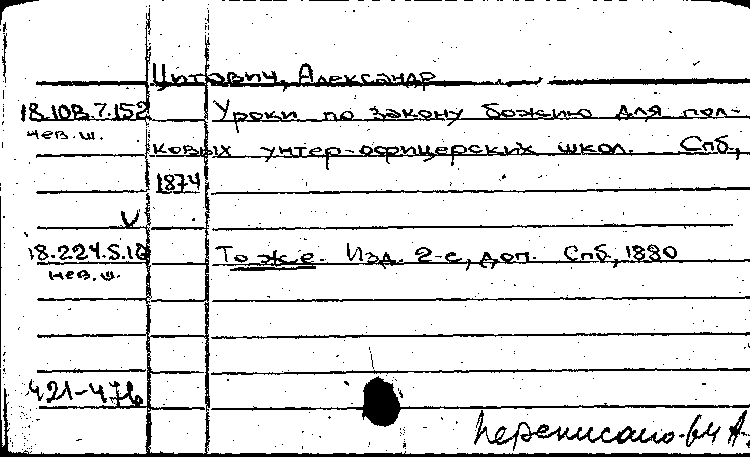 Цитович, Александр
18.108.7.152 Уроки по закону божию для пол-
нев. ш.
ковых унтер-офицерских школ. Спб.,
1874
V
18.224.5.18 То же. Изд. 2-е, доп. Спб., 1880
нев. ш.
421-476
переписано